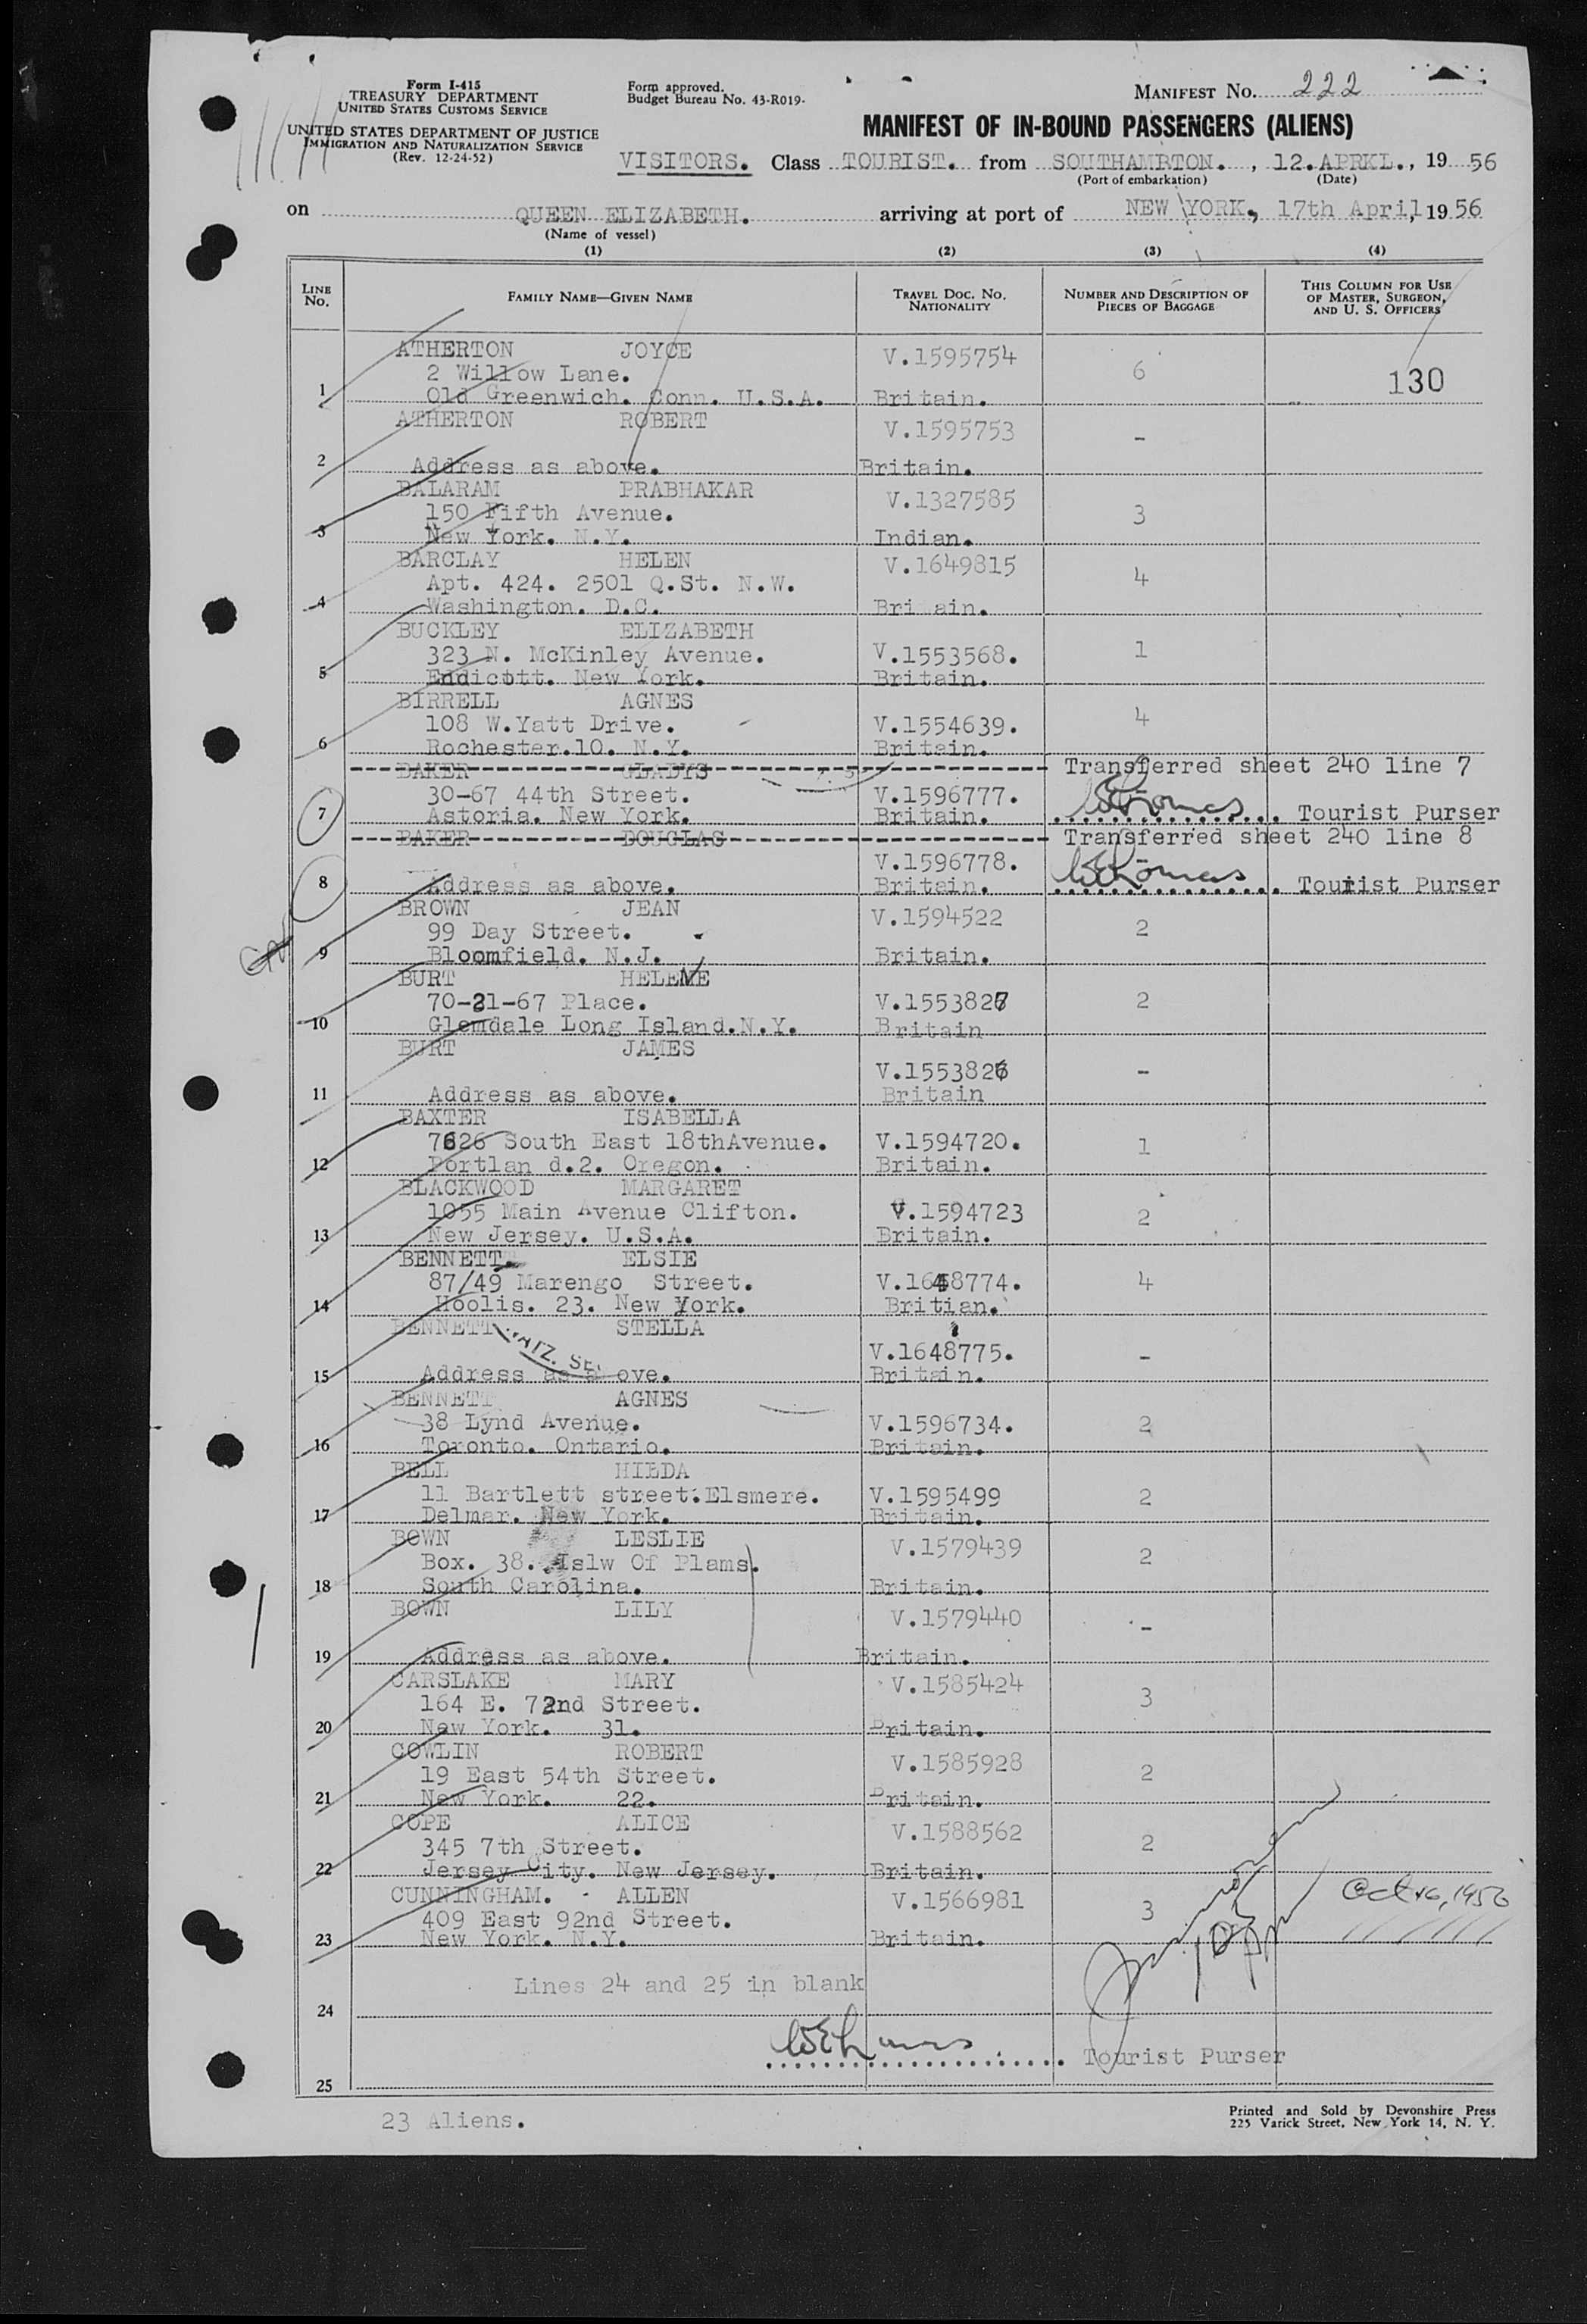 Form I-415
TREASURY DEPARTMENT
UNITED STATES CUSTOMS SERVICE
UNITED STATES DEPARTMENT OF JUSTICE
IMMIGRATION AND NATURALIZATION SERVICE
(Rev. 12-24-52)
Form approved.
Budget Bureau No. 43-R019.
MANIFEST NO. 222
MANIFEST OF IN-BOUND PASSENGERS (ALIENS)
VISITORS. Class TOURIST. from SOUTHAMBTON. , 12.APRKL., 19 56
(Port of embarkation) (Date)
on QUEEN ELIZABETH. arriving at port of NEW YORK, 17th April, 19 56
(Name of vessel)
(1) (2) (3) (4)
LINE No. FAMILY NAME—GIVEN NAME TRAVEL DOC. NO. NATIONALITY NUMBER AND DESCRIPTION OF PIECES OF BAGGAGE THIS COLUMN FOR USE OF MASTER, SURGEON, AND U. S. OFFICERS
ATHERTON JOYCE V.1595754
2 Willow Lane. 6 130
1 Old Greenwich. Conn. U.S.A. Britain.
ATHERTON ROBERT V.1595753 -
2 Address as above. Britain.
BALARAM PRABHAKAR V.1327585
150 Fifth Avenue. 3
3 New York. N.Y. Indian.
BARCLAY HELEN V.1649815
Apt. 424. 2501 Q.St. N.W. 4
4 Washington. D.C. Bri ain.
BUCKLEY ELIZABETH
323 N. McKinley Avenue. V.1553568. 1
5 Endicott. New York. Britain.
BIRRELL AGNES
108 W.Yatt Drive. V.1554639. 4
6 Rochester.10. N.Y. Britain.
BAKER GLADYS Transferred sheet 240 line 7
30-67 44th Street. V.1596777.
7 Astoria. New York. Britain. Tourist Purser
BAKER DOUGLAS Transferred sheet 240 line 8
V.1596778.
8 Address as above. Britain. Tourist Purser
BROWN JEAN V.1594522
99 Day Street. 2
9 Bloomfield. N.J. Britain.
BURT HELENE
70-21-67 Place. V.1553827 2
10 Glemdale Long Island.N.Y. Britain
BURT JAMES
V.1553826 -
11 Address as above. Britain
BAXTER ISABELLA
7626 South East 18thAvenue. V.1594720. 1
12 Portlan d.2. Oregon. Britain.
BLACKWOOD MARGARET
1055 Main Avenue Clifton. V.1594723 2
13 New Jersey. U.S.A. Britain.
BENNETT. ELSIE
87/49 Marengo Street. V.1648774. 4
14 Hoolis. 23. New York. Britian.
BENNETT STELLA
V.1648775. -
15 Address as above. Britain.
BENNETT AGNES
38 Lynd Avenue. V.1596734. 2
16 Toronto. Ontario. Britain.
BELL HILDA
11 Bartlett street.Elsmere. V.1595499 2
17 Delmar. New York. Britain.
BOWN LESLIE V.1579439
Box. 38. Islw Of Plams. 2
18 South Carolina. Britain.
BOWN LILY V.1579440 -
19 Address as above. Britain.
CARSLAKE MARY V.1585424
164 E. 72nd Street. 3
20 New York. 31. Britain.
COWLIN ROBERT V.1585928
19 East 54th Street. 2
21 New York. 22. Britain.
COPE ALICE V.1588562
345 7th Street. 2
22 Jersey City. New Jersey. Britain.
CUNNINGHAM. ALLEN V.1566981 Oct 16, 1956
409 East 92nd Street. 3
23 New York. N.Y. Britain.
Lines 24 and 25 in blank
24
Tourist Purser
25
23 Aliens.
Printed and Sold by Devonshire Press
225 Varick Street, New York 14, N. Y.